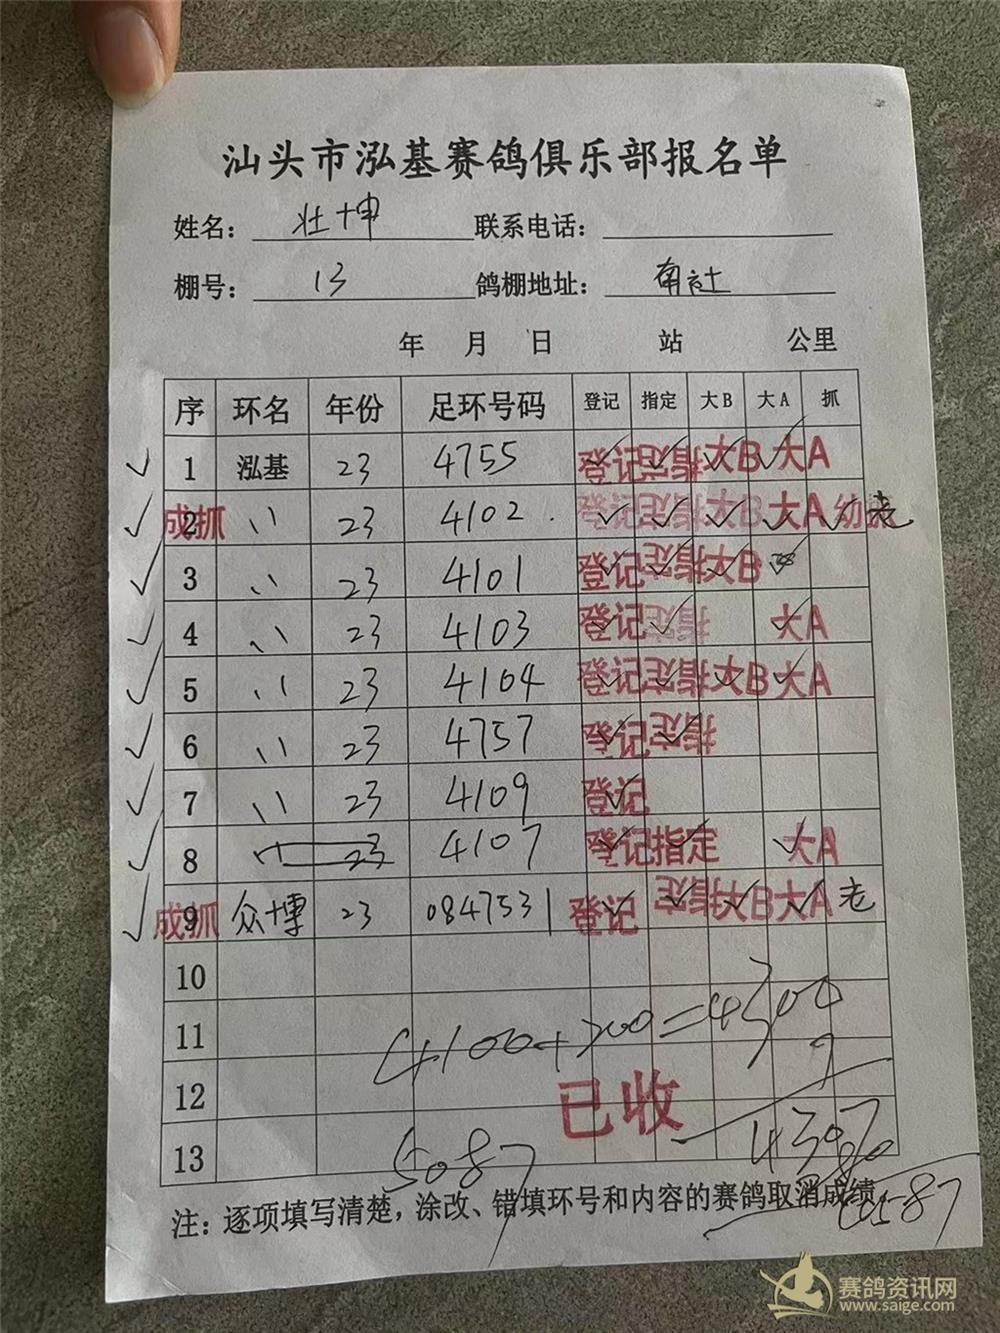 汕头市泓基赛鸽俱乐部报名单
姓名： 壮坤 联系电话：
棚号： 13 鸽棚地址： 南社
年 月 日 站 公里
序 环名 年份 足环号码 登记 指定 大B 大A 抓
1 泓基 23 4755 登记 指定 大B 大A
成抓 2 〃 23 4102 登记 指定 大B 大A 幼 老
3 〃 23 4101 登记 指定 大B
4 〃 23 4103 登记 指定 大A
5 〃 23 4104 登记 指定 大B 大A
6 〃 23 4757 登记 指定
7 〃 23 4109 登记
8 〃 23 4107 登记 指定 大A
成抓 9 众博 23 0847531 登记 指定 大B 大A 老
10
11 4100+200=4300
12 已收
13 5087
注：逐项填写清楚，涂改、错填环号和内容的赛鸽取消成绩
赛鸽资讯网
www.saige.com